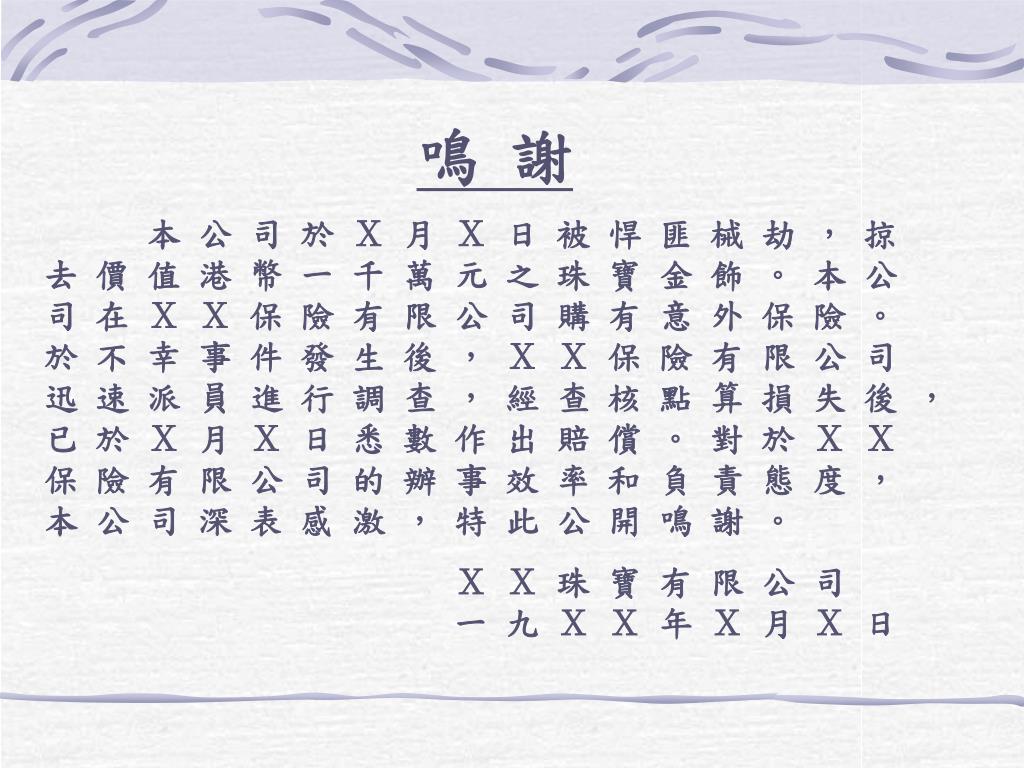 鳴 謝
本公司於X月X日被悍匪械劫，掠
去價值港幣一千萬元之珠寶金飾。本公
司在XX保險有限公司購有意外保險。
於不幸事件發生後，XX保險有限公司
迅速派員進行調查，經查核點算損失後，
已於X月X日悉數作出賠償。對於XX
保險有限公司的辦事效率和負責態度，
本公司深表感激，特此公開鳴謝。
XX珠寶有限公司
一九XX年X月X日